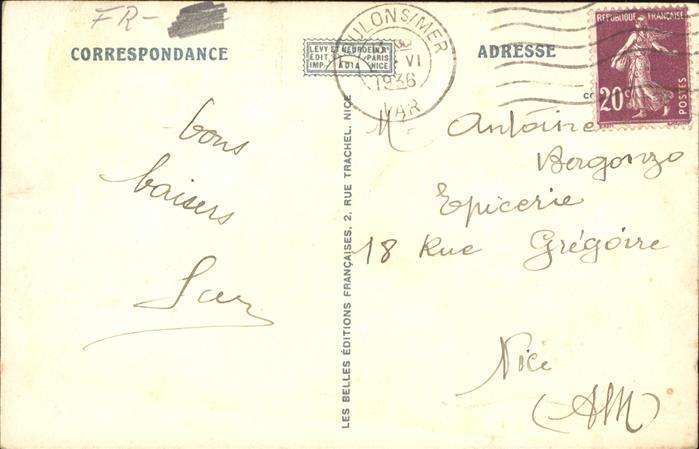 FR-
CORRESPONDANCE
bons
baisers
LEVY ET NEURDEIN R.
EDIT. PARIS
IMP. NICE
TOULON S/MER
VI
1936
VAR
ADRESSE
REPUBLIQUE FRANÇAISE
20
POSTES
LES BELLES ÉDITIONS FRANÇAISES, 2, RUE TRACHEL, NICE
M Antoine
Bergonzo
Epicerie
18 Rue Grégoire
Nice
(AM)